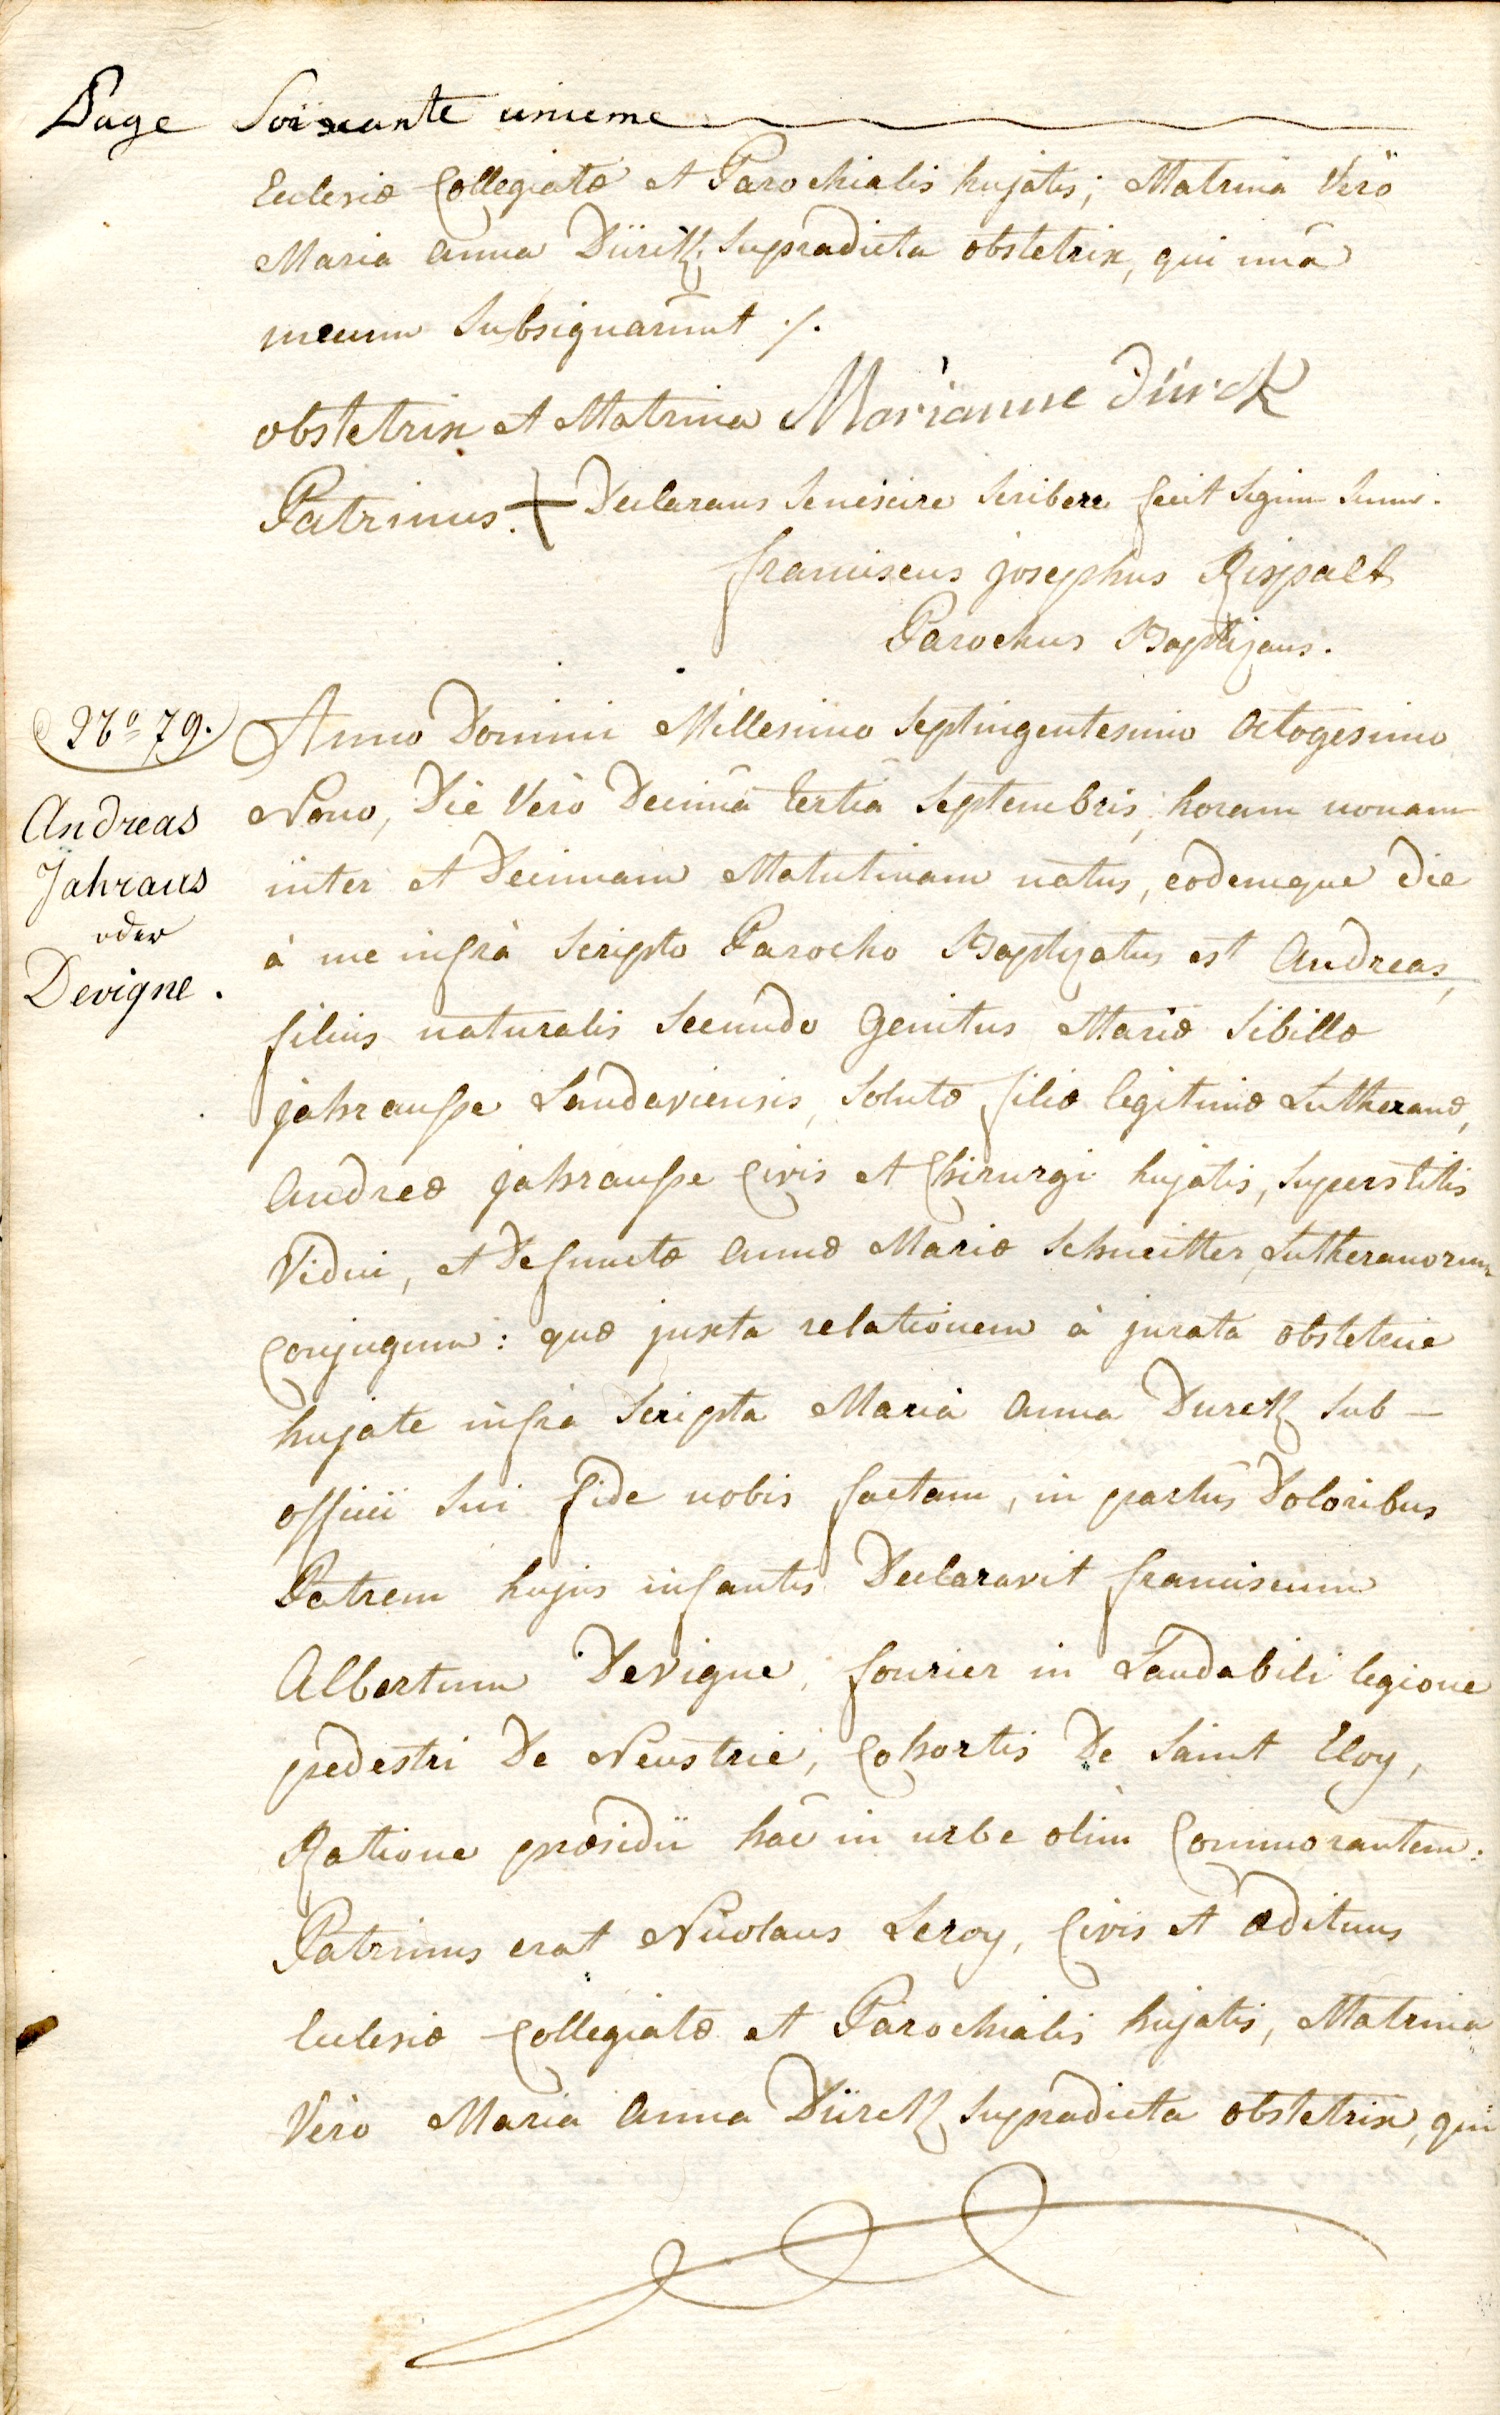 Page Soixante unieme
Ecclesiæ Collegiatæ et Parochialis hujatis; Matrina Verò
Maria Anna Dürck supradicta obstetrix, qui unà
mecum subsignarunt ./.
obstetrix et Matrina Marianne Dürck
Patrinus. + Declarans se nescire scribere fecit signum suum.
franciscus josephus Rispalt
Parochus Baptizans.
N.º 79.
Andreas
Jahraus
oder
Devigne.
Anno Domini Millesimo Septingentesimo octogesimo
Nono, Die Verò Decimâ tertiâ Septembris, horam nonam
inter et Decimam Matutinam natus, eodemque die
à me infrà scripto Parocho Baptizatus est Andreas,
filius naturalis secundo genitus Mariæ Sibillæ
jahrausse Landaviensis, solutæ filiæ legitimæ Lutheranæ,
Andreæ jahrausse Civis et Chirurgi hujatis, superstitis
Vidui, et Defunctæ Annæ Mariæ Schneitter, Lutheranorum
Conjugum: quæ juxta relationem à jurata obstetrice
hujate infrà scripta Mariâ Anna Dürck sub-
officii sui fide nobis factam, in partûs Doloribus
Patrem hujus infantis Declaravit franciscum
Albertum Devigne, fourier in Laudabili legione
pedestri De Neustrie, Cohortis De Saint Eloy,
Ratione præsidii hâc in urbe olim Commorantem:
Patrinus erat Nicolaus Leroy, Civis et ædituus
Ecclesiæ Collegiatæ et Parochialis hujatis, Matrina
Verò Maria Anna Dürck supradicta obstetrix, qui